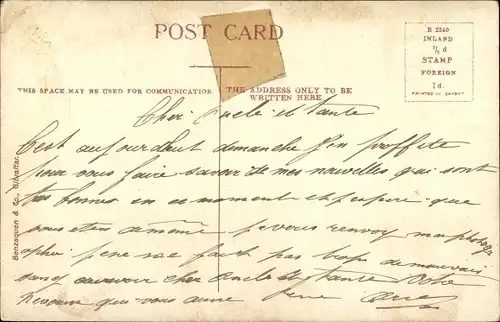 POST CARD
B 2340
INLAND
½ d
STAMP
FOREIGN
1d.
PRINTED IN SAXONY
THIS SPACE MAY BE USED FOR COMMUNICATION.
THE ADDRESS ONLY TO BE
WRITTEN HERE.
Benzaquen & Co., Gibraltar.
Cher Oncle et tante
C'est aujourdaut dimanche J'en proffite
pour vous faire savoir de mes nouvelles qui sont
tres bonnes en ce moment et j'espere que
vous eten de meme je vous renvoy ma photogra
phie je ne me fait pas trop de mauvai
sang au revoir cher Oncle et tante Votre
Neveux que vous aime